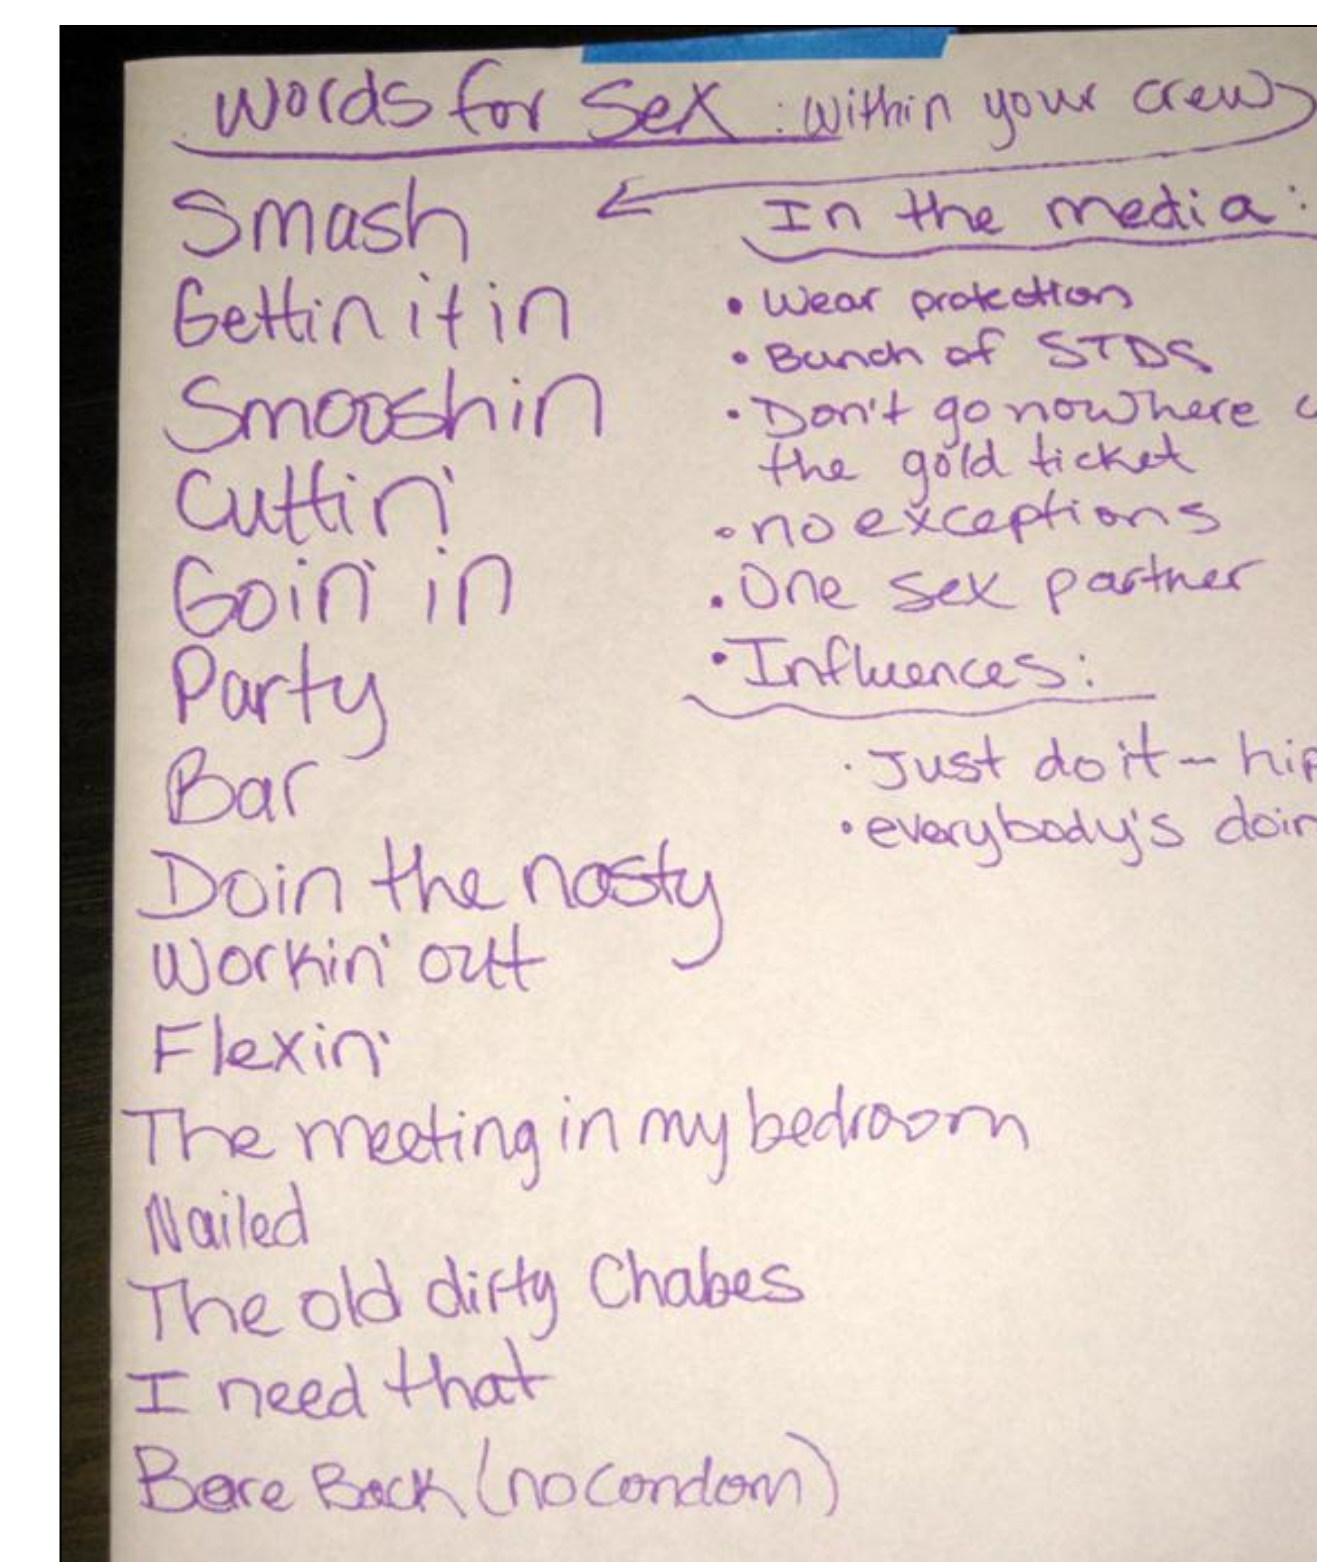 Words for Sex : within your crew
Smash
Gettin it in
Smooshin
Cuttin'
Goin' in
Party
Bar
Doin the nasty
Workin' out
Flexin'
The meeting in my bedroom
Nailed
The old dirty Chabes
I need that
Bare Back (no condom)
In the media:
• Wear protection
• Bunch of STDS
• Don't go nowhere
the gold ticket
• no exceptions
• One sex partner
• Influences:
• Just do it - hip
• everybody's doin